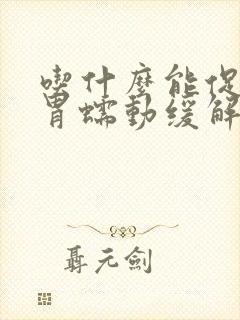 喫什麼能促
胃蠕動緩解
聶元劍